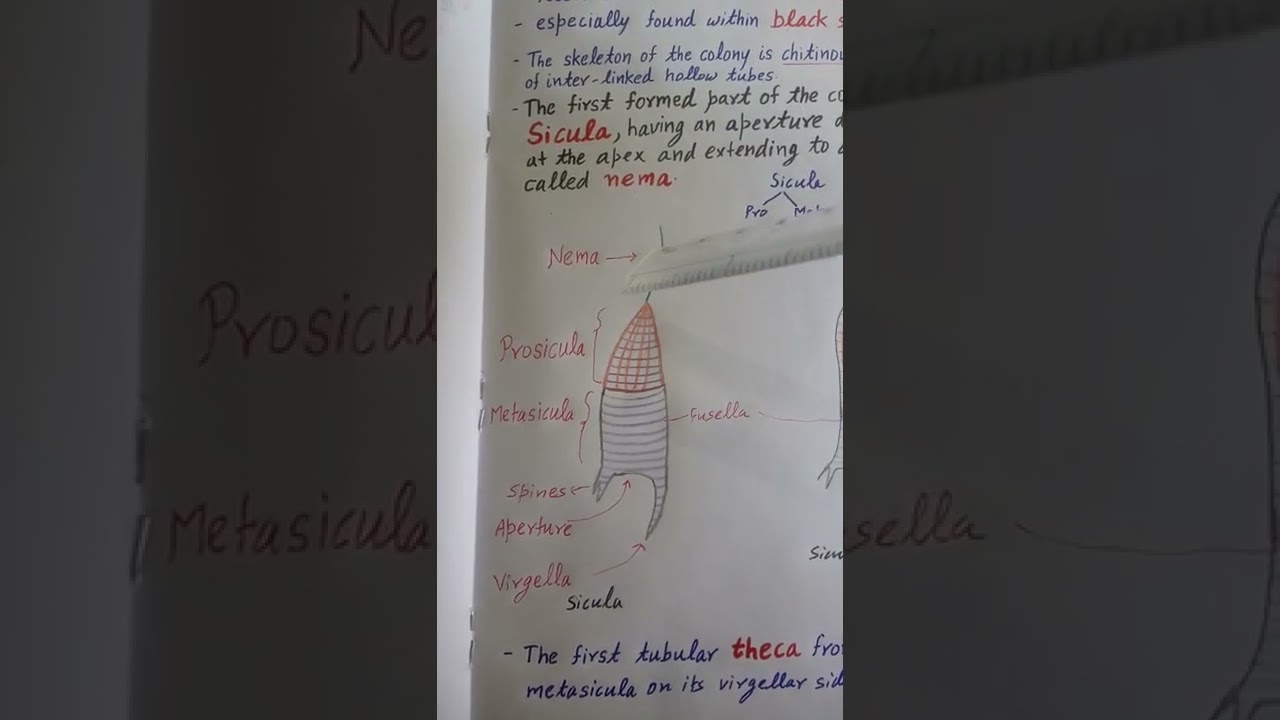 - especially found within black
- The skeleton of the colony is
of inter-linked hollow tubes.
- The first formed part of the
Sicula, having an aperture
at the apex and extending to
called nema.
Sicula
Pro
Nema
Prosicula
Metasicula
Fusella
Spines
Aperture
Virgella
Sicula
- The first tubular theca
metasicula on its virgellar